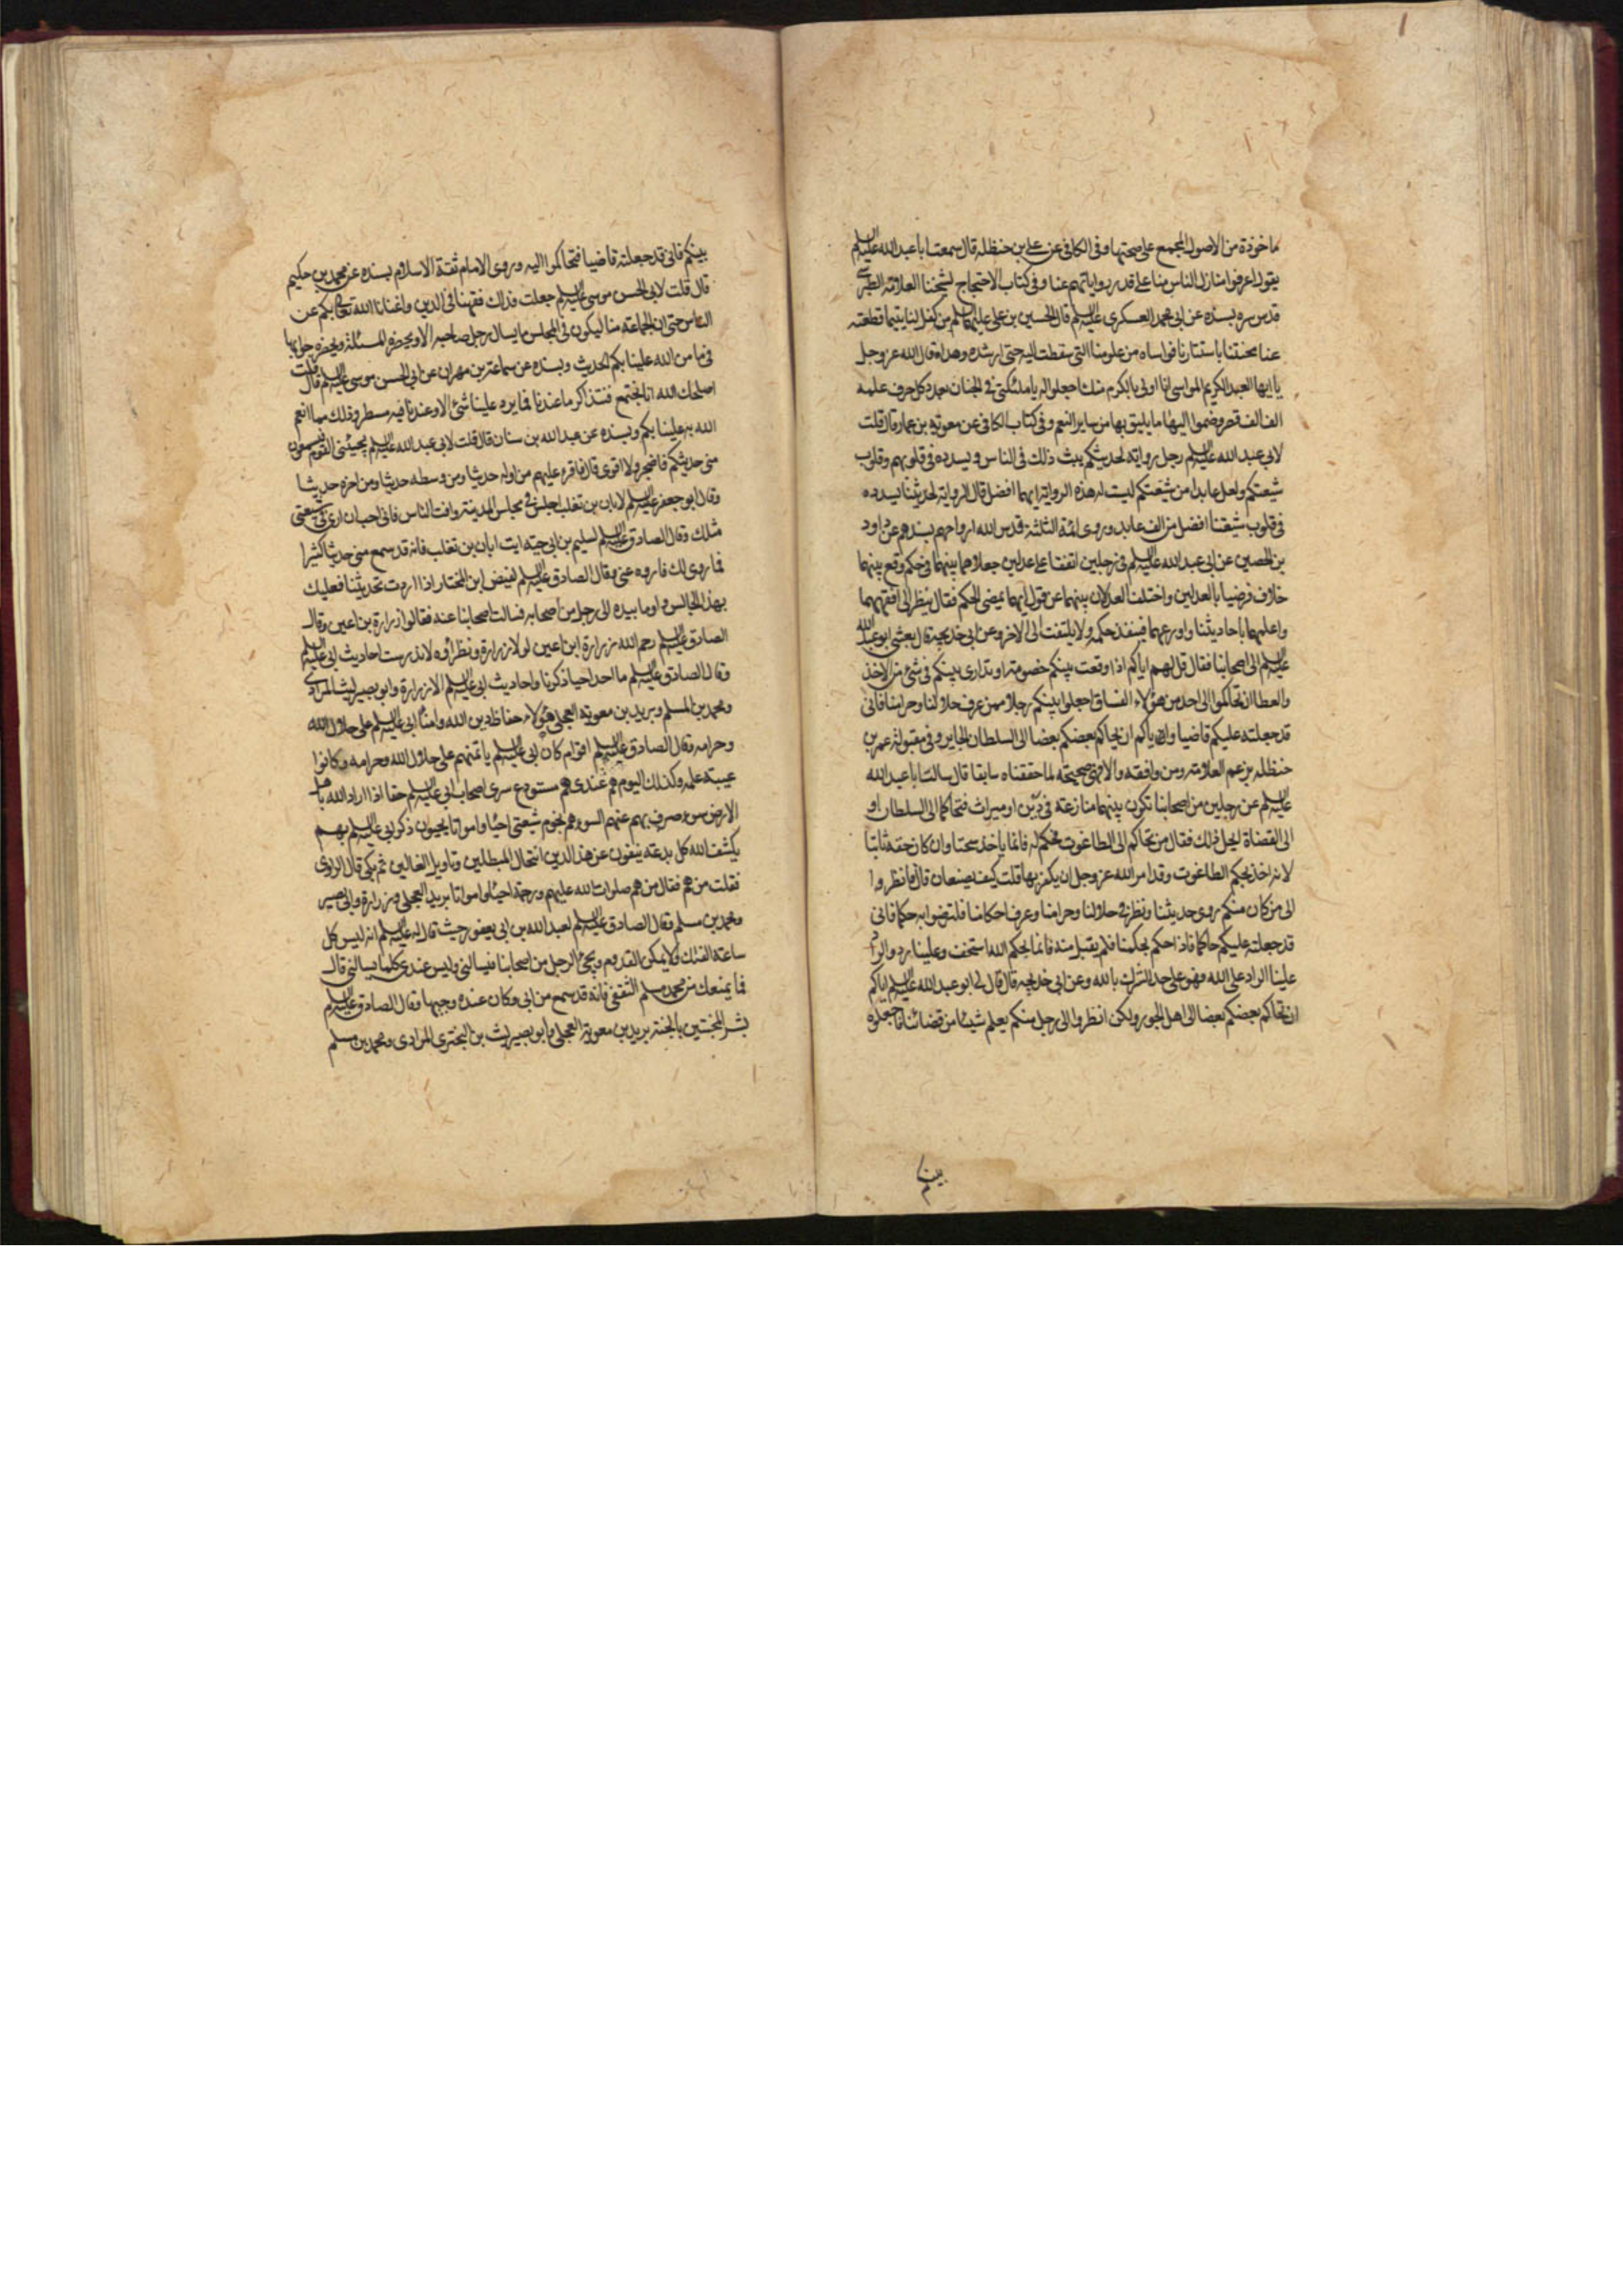 ماخوذة من الاصول المجمع على صحتها وفى الكافى عن على بن حنظله قال سمعت ابا عبد الله عليه السلم
يقول اعرفوا منازل الناس منا على قدر رواياتهم عنا وفى كتاب الاحتجاج لشيخنا العلامه الطبرسى
قدس سره بسنده عن ابى محمد العسكرى عليه السلم قال الحسين بن على عليهما السلم من كفل لنا يتيما قطعته
عنا محنتنا باستتارنا فواساه من علومنا التى سقطت اليه حتى ارشده وهداه قال الله عز وجل
يا ايها العبد الكريم المواسى انا اولى بالكرم منك اجعلوا له يا ملئكتى فى الجنان بعدد كل حرف علمه
الف الف قصر وضموا اليها ما يليق بها من ساير النعم وفى كتاب الكافى عن معويه بن عمار قال قلت
لابى عبد الله عليه السلم رجل روايه لحديثكم يبث ذلك فى الناس ويسدده فى قلوبهم وقلوب
شيعتكم ولعل عابدا من شيعتكم ليست له هذه الرواية ايهما افضل قال الرواية لحديثنا يسدده
فى قلوب شيعتنا افضل من الف عابد وروى ائمة الثلثة قدس الله ارواحهم بسندهم عن داود
بن الحصين عن ابى عبد الله عليه السلم فى رجلين اتفقا على عدلين جعلاهما بينهما فى حكم وقع بينهما
خلاف فرضيا بالعدلين واختلف العدلان بينهما عن قول ايهما يمضى الحكم فقال ينظر الى افقههما
واعلمهما باحاديثنا واورعهما فينفذ حكمه ولا يلتفت الى الاخر وعن ابى خديجة قال بعثنى ابو عبد الله
عليه السلم الى اصحابنا فقال قل لهم اياكم اذا وقعت بينكم خصومة او تدارى بينكم فى شئ من الاخذ
والعطا ان تحاكموا الى احد من هؤلاء الفساق اجعلوا بينكم رجلا ممن عرف حلالنا وحرامنا فانى
قد جعلته عليكم قاضيا واياكم ان يحاكم بعضكم بعضا الى السلطان الجاير وفى مقبولة عمر بن
حنظله بزعم العلامة ومن وافقه والا فهى صحيحة لما حققناه سابقا قال سالت ابا عبد الله
عليه السلم عن رجلين من اصحابنا تكون بينهما منازعة فى دين او ميراث فتحاكما الى السلطان او
الى القضاة ايحل ذلك فقال من تحاكم الى الطاغوت فحكم له فانما ياخذ سحتا وان كان حقه ثابتا
لانه اخذ بحكم الطاغوت وقد امر الله عز وجل ان يكفر بها قلت كيف يصنعان قال فانظروا
الى من كان منكم روى حديثنا ونظر فى حلالنا وحرامنا وعرف احكامنا فلترضوا به حكما فانى
قد جعلته عليكم حاكما فاذا حكم بحكمنا فلم يقبل منه فانما بحكم الله استخف وعلينا رد والراد
علينا الراد على الله فهو على حد الشرك بالله وعن ابى خديجه قال قال لى ابو عبد الله عليه السلم اياكم
ان تحاكم بعضكم بعضا الى اهل الجور ولكن انظروا الى رجل منكم يعلم شيئا من قضائنا فاجعلوه
بينكم فانى قد جعلته قاضيا فتحاكموا اليه وروى الامام ثقة الاسلام بسنده عن محمد بن حكيم
قال قلت لابى الحسن موسى عليه السلم جعلت فداك فقهنا فى الدين واغنانا الله تعالى بكم عن
الناس حتى ان الجماعة منا ليكون فى المجلس ما يسال رجل صاحبه الا ويحضره المسئلة ويحضره جوابها
فى ما من الله علينا بكم الحديث وبسنده عن سماعة بن مهران عن ابى الحسن موسى عليه السلم قال قلت
اصلحك الله انا نجتمع فنتذاكر ما عندنا فما يرد علينا شئ الا وعندنا فيه مسطر وذلك مما انعم
الله به علينا بكم وبسنده عن عبد الله بن سنان قال قلت لابى عبد الله عليه السلم يجيئنى القوم فيسمعون
منى حديثكم فاضجر ولا اقوى قال فاقرء عليهم من اوله حديثا ومن وسطه حديثا ومن اخره حديثا
وقال ابو جعفر عليه السلم لابان بن تغلب اجلس فى مجلس المدينة وافت الناس فانى احب ان ارى فى شيعتى
مثلك وقال الصادق عليه السلم لسليم بن ابى حية ايت ابان بن تغلب فانه قد سمع منى حديثا كثيرا
فما روى لك فاروه عنى وقال الصادق عليه السلم لفيض ابن المختار اذا اردت تحديثنا فعليك
بهذا الجالس واوما بيده الى رجل من اصحابه فسالت اصحابنا عنه فقالوا زرارة بن اعين وقال
الصادق عليه السلم رحم الله زرارة ابن اعين لولا زرارة ونظراؤه لاندرست احاديث ابى عليه السلم
وقال الصادق عليه السلم ما احد احيا ذكرنا واحاديث ابى عليه السلم الا زرارة وابو بصير ليث المرادى
ومحمد بن المسلم وبريد بن معويه العجلى هؤلاء حفاظ دين الله وامناء ابى عليه السلم على حلال الله
وحرامه وقال الصادق عليه السلم اقوام كان ابى عليه السلم ياتمنهم على حلال الله وحرامه وكانوا
عيبة علمه وكذلك اليوم هم عندى هم مستودع سرى اصحاب ابى عليه السلم حقا اذا اراد الله باهل
الارض سوء صرف بهم عنهم السوء هم نجوم شيعتى احياء وامواتا يحيون ذكر ابى عليه السلم بهم
يكشف الله كل بدعة ينفون عن هذا الدين انتحال المبطلين وتاويل الغالين ثم بكى قال الراوى
فقلت من هم فقال من هم صلوات الله عليهم ورحمته احياء وامواتا بريد العجلى وزرارة وابى بصير
ومحمد بن مسلم وقال الصادق عليه السلم لعبد الله بن ابى يعفور حيث قال له عليه السلم انه ليس كل
ساعة القئك ولا يمكن القدوم ويجئ الرجل من اصحابنا فيسالنى وليس عندى كلما يسالنى قال
فما يمنعك من محمد بن مسلم الثقفى فانه قد سمع من ابى وكان عنده وجيها وقال الصادق عليه السلم
بشر المخبتين بالجنة بريد بن معوية العجلى وابو بصير ليث بن البخترى المرادى ومحمد بن مسلم